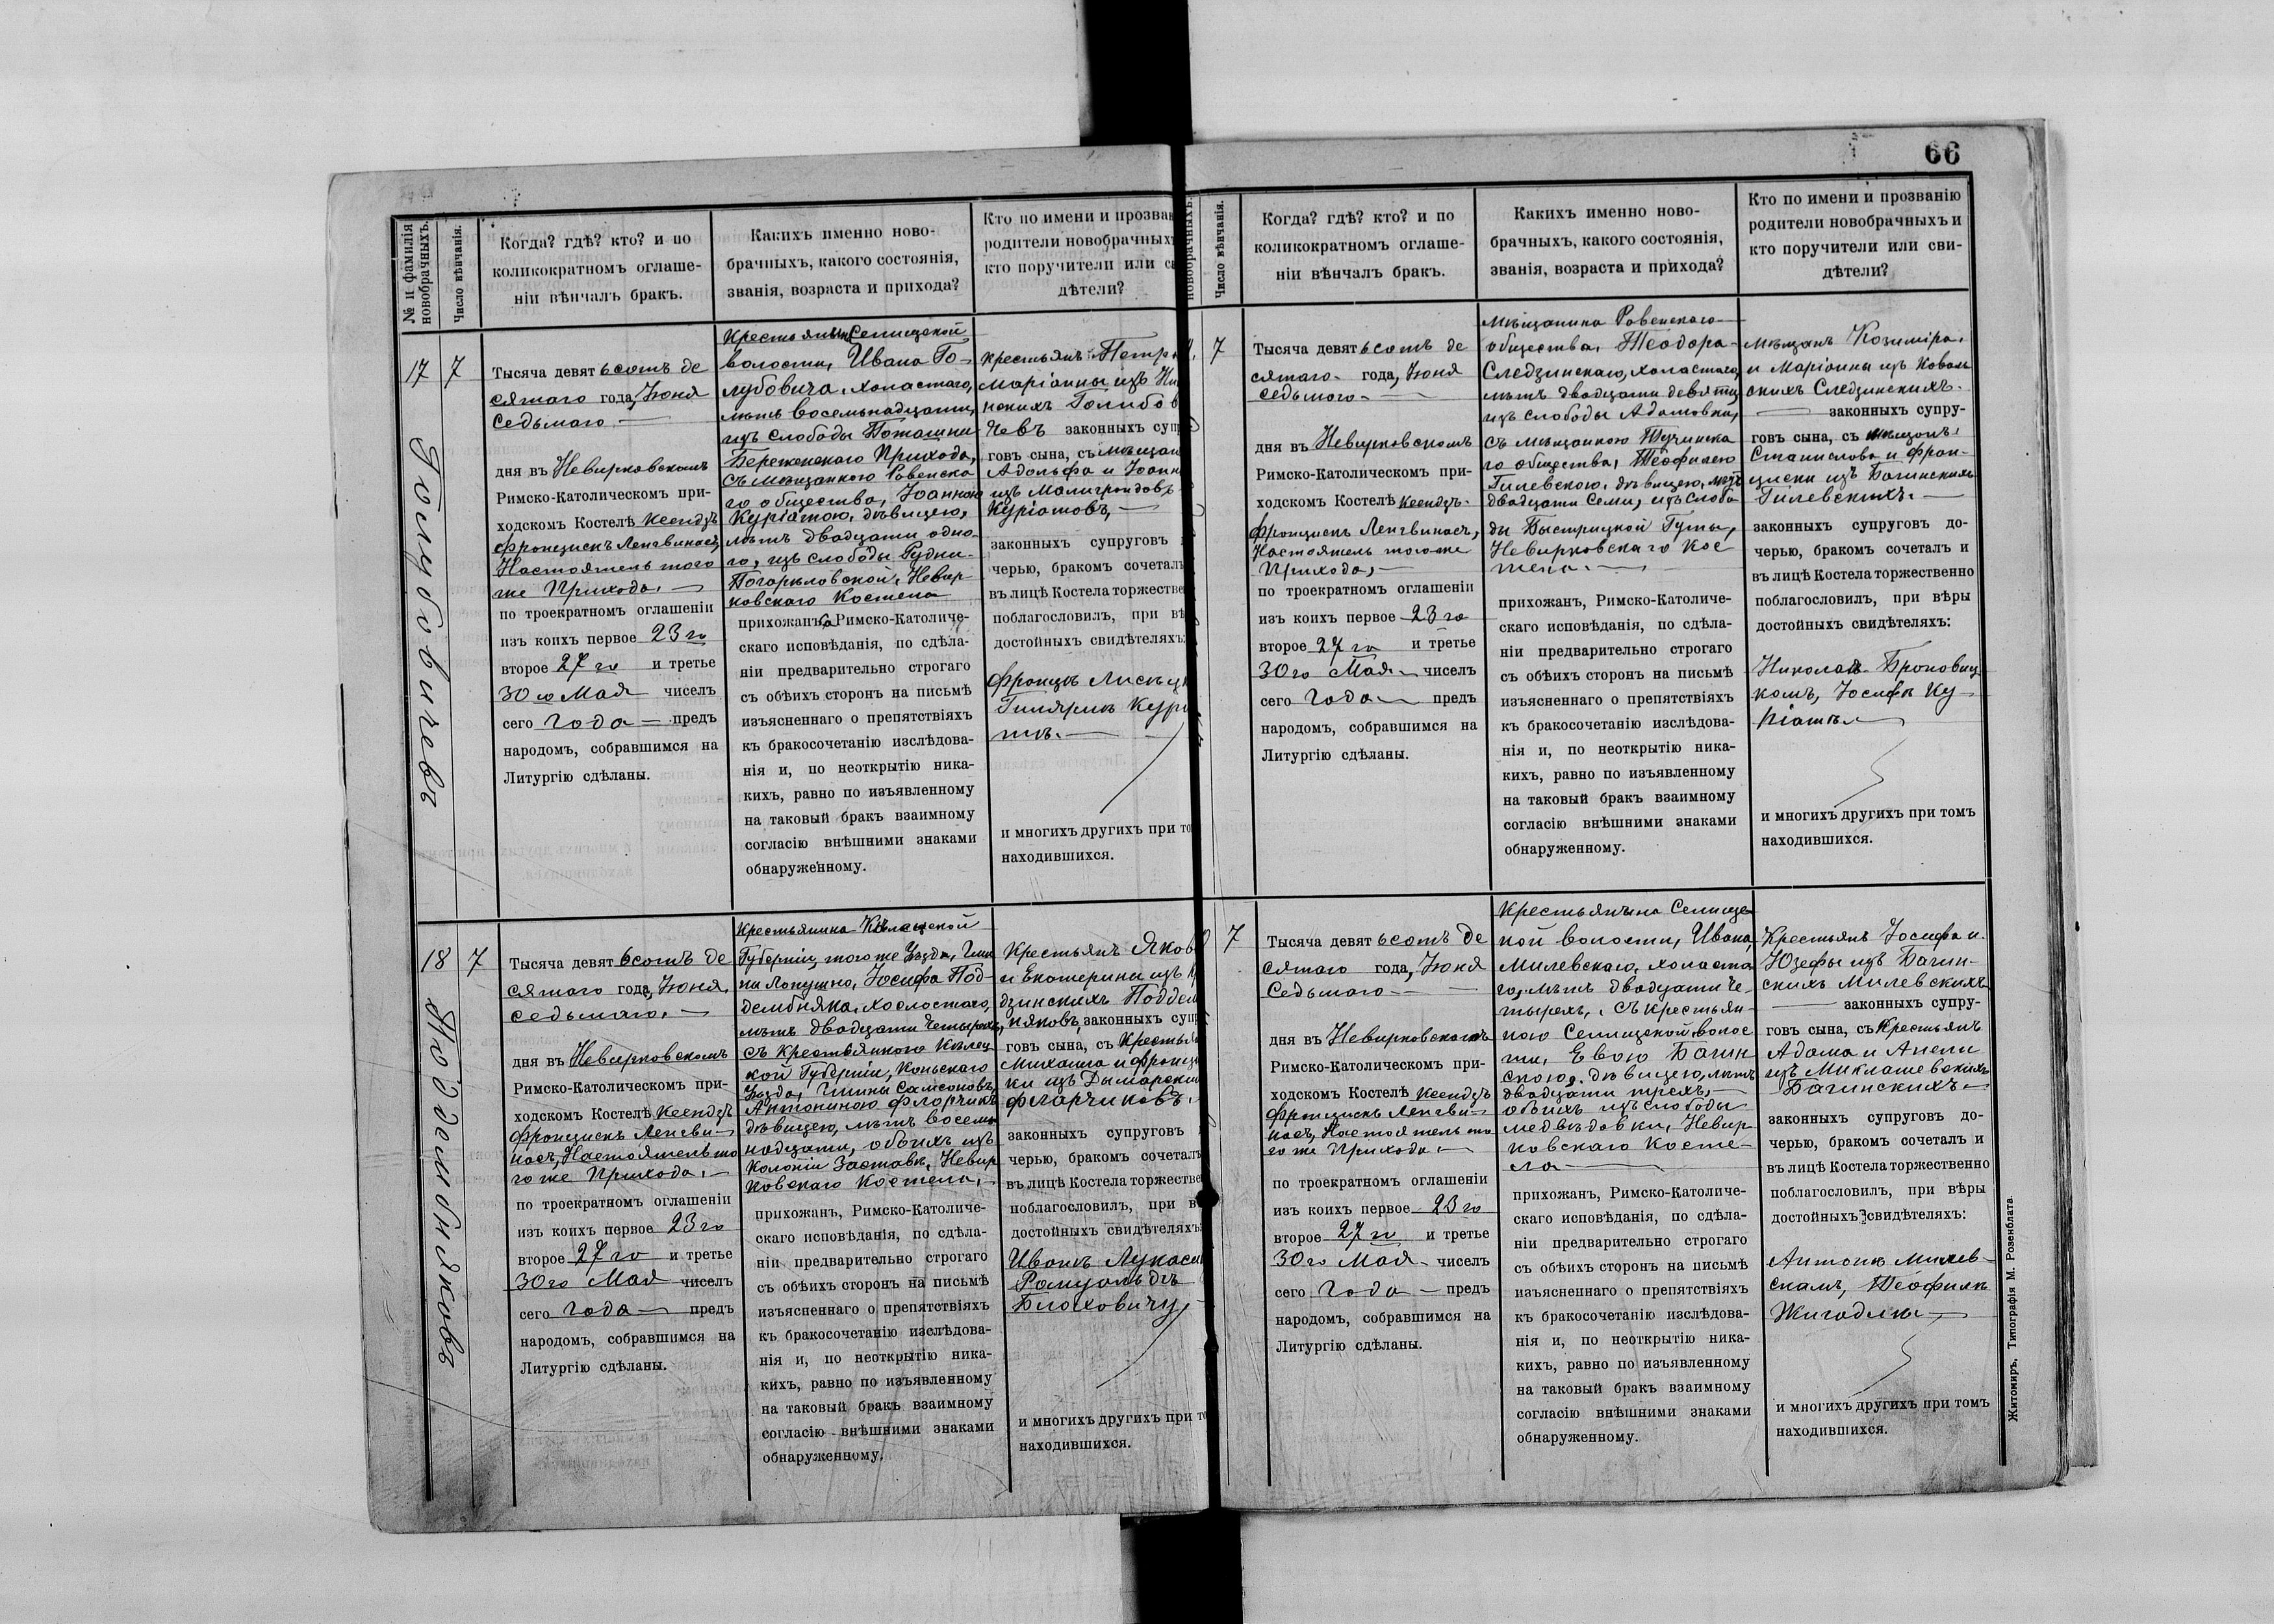 № и фамилія новобрачныхъ.
Число вѣнчанія.
Когда? гдѣ? кто? и по
коликократномъ оглаше-
ніи вѣнчалъ бракъ.
Какихъ именно ново-
брачныхъ, какого состоянія,
званія, возраста и прихода?
Кто по имени и прозван
родители новобрачныхъ
кто поручители или св
дѣтели?
17
Голубовичевъ
7
Тысяча девят ьсотъ де
сятаго года, Іюня
седьмаго
дня въ Невирковскомъ
Римско-Католическомъ при-
ходскомъ Костелѣ Ксендзъ
Францискъ Ленгвинасъ,
Настоятель того
же Прихода.
по троекратномъ оглашеніи
изъ коихъ первое 23 го
второе 27 го и третье
30 го Мая чиселъ
сего года предъ
народомъ, собравшимся на
Литургію сдѣланы.
Крестьянина Селищской
волости, Ивана Го-
лубовича, холастаго,
лѣтъ восемьнадцати,
изъ слободы Поташни
Береженскаго Прихода,
съ мѣщанкою Ровенска
го общества, Іоанною
Куріатою, дѣвицею,
лѣтъ двадцати одно-
го, изъ слободы Рудни-
Погорѣловской, Невир-
ковскаго Костела
прихожанъ, Римско-Католиче-
скаго исповѣданія, по сдѣла-
ніи предварительно строгаго
съ обѣихъ сторонъ на письмѣ
изъясненнаго о препятствіяхъ
къ бракосочетанію изслѣдова-
нія и, по неоткрытію ника-
кихъ, равно по изъявленному
на таковый бракъ взаимному
согласію внѣшними знаками
обнаруженному.
крестьянъ Петра
Маріанны изъ
скихъ Голубо
чевъ законныхъ суп
говъ сына, съ мѣщан
Адольфа и Іоан
изъ Малиграндовъ
Куріатовъ,
законныхъ супруговъ
черью, бракомъ сочеталъ
въ лицѣ Костела торжестве
поблагословилъ, при вѣ
достойныхъ свидѣтеляхъ:
Гиляріѣ Курі
тѣ.
и многихъ другихъ при то
находившихся.
18
Поддембняковъ
7
Тысяча девят ьсотъ де
сятаго года, Іюня,
седьмаго.
дня въ Невирковскомъ
Римско-Католическомъ при-
ходскомъ Костелѣ Ксендзъ
Францискъ Ленгви-
насъ, Настоятель то
го же Прихода.
по троекратномъ оглашеніи
изъ коихъ первое 23 го
второе 27 го и третье
30 го Мая чиселъ
сего года предъ
народомъ, собравшимся на
Литургію сдѣланы.
Крестьянина Кѣлецкой
Губерніи, того же Уѣзда, Гми
ны Лопушно, Іосифа Под-
дембняка, холостаго,
лѣтъ двадцати четырехъ,
съ крестьянкою Кѣлец
кой Губерніи, Коньскаго
Уѣзда, Гмины Самсоновъ,
Антониною Фларчикъ
дѣвицею, лѣтъ восем
надцати, обоихъ изъ
Колоніи Заставки, Невир
ковскаго Костела,
прихожанъ, Римско-Католиче-
скаго исповѣданія, по сдѣла-
ніи предварительно строгаго
съ обѣихъ сторонъ на письмѣ
изъясненнаго о препятствіяхъ
къ бракосочетанію изслѣдова-
нія и, по неоткрытію ника-
кихъ, равно по изъявленному
на таковый бракъ взаимному
согласію внѣшними знаками
обнаруженному.
Крестьянъ Яков
и Екатерины изъ
дзинскихъ Поддем
няковъ, законныхъ суп
говъ сына, съ Крестья
Михаила и Францы
ки изъ Дымарски
Фларчиковъ.
законныхъ супруговъ
черью, бракомъ сочеталъ
въ лицѣ Костела торжестве
поблагословилъ, при в
достойныхъ свидѣтеляхъ
Иванѣ Лукаси
Ромуальдѣ
Блаховичу,
и многихъ другихъ при то
находившихся.
66
новобрачныхъ.
Число вѣнчанія.
Когда? гдѣ? кто? и по
коликократномъ оглаше-
ніи вѣнчалъ бракъ.
Какихъ именно ново-
брачныхъ, какого состоянія,
званія, возраста и прихода?
Кто по имени и прозванію
родители новобрачныхъ и
кто поручители или сви-
дѣтели?
7
Тысяча девят ьсотъ де
сятаго года, Іюня
седьмого
дня въ Невирковскомъ
Римско-Католическомъ при-
ходскомъ Костелѣ Ксендзъ
Францискъ Ленгвинасъ,
Настоятель того же
Прихода,
по троекратномъ оглашеніи
изъ коихъ первое 23 го
второе 27 го и третье
30 го Мая чиселъ
сего года предъ
народомъ, собравшимся на
Литургію сдѣланы.
Мѣщанина Ровенскаго
общества, Теодора
Следзинскаго, холастаго,
лѣтъ двадцати девяти,
изъ слободы Адамовки,
съ мѣщанкою Тучинска
го общества, Теофилею
Гилевскою, дѣвицею, лѣтъ
двадцати семи, изъ слобо
ды Быстрицкой Гуты,
Невирковскаго Кос
тела.
прихожанъ, Римско-Католиче-
скаго исповѣданія, по сдѣла-
ніи предварительно строгаго
съ обѣихъ сторонъ на письмѣ
изъясненнаго о препятствіяхъ
къ бракосочетанію изслѣдова-
нія и, по неоткрытію ника-
кихъ, равно по изъявленному
на таковый бракъ взаимному
согласію внѣшними знаками
обнаруженному.
Мѣщанъ Козиміра,
и Маріанны изъ Коваль
скихъ Следзинскихъ.
законныхъ супру-
говъ сына, съ мѣщанъ
Станислава и Фран-
циски изъ Багинскихъ
Гилевскихъ.
законныхъ супруговъ до-
черью, бракомъ сочеталъ и
въ лицѣ Костела торжественно
поблагословилъ, при вѣры
достойныхъ свидѣтеляхъ:
Николаѣ Броновиц
комъ, Іосифѣ Ку
ріатѣ
и многихъ другихъ при томъ
находившихся.
7
Тысяча девят ьсотъ де
сятаго года, Іюня
Седьмаго
дня въ Невирковскомъ
Римско-Католическомъ при-
ходскомъ Костелѣ Ксендзъ
Францискъ Ленгви-
насъ, Настоятель то
го же Прихода
по троекратномъ оглашеніи
изъ коихъ первое 23 го
второе 27 го и третье
30 го Мая чиселъ
сего года предъ
народомъ, собравшимся на
Литургію сдѣланы.
Крестьянина Селищс
кой волости, Ивана,
Милевскаго, холаста
го, лѣтъ двадцати че-
тырехъ, съ крестьян-
кою Селищской волос
ти, Евою Багин
скою, дѣвицею, лѣтъ
двадцати трехъ,
обоихъ изъ слободы
Медвѣдовки, Невир
ковскаго Косте-
ла
прихожанъ, Римско-Католиче-
скаго исповѣданія, по сдѣла-
ніи предварительно строгаго
съ обѣихъ сторонъ на письмѣ
изъясненнаго о препятствіяхъ
къ бракосочетанію изслѣдова-
нія и, по неоткрытію ника-
кихъ, равно по изъявленному
на таковый бракъ взаимному
согласію внѣшними знаками
обнаруженному.
Крестьянъ Іосифа и
Юзефы изъ Багин-
скихъ Милевскихъ
законныхъ супру-
говъ сына, съ Крестьянъ
Адама и Анели
изъ Миклашевскихъ
Багинскихъ
законныхъ супруговъ до-
черью, бракомъ сочеталъ и
въ лицѣ Костела торжественно
поблагословилъ, при вѣры
достойныхъ свидѣтеляхъ:
Антонѣ Милев-
скамъ, Теофилѣ
и многихъ другихъ при томъ
находившихся.
Житомиръ, Типографія М. Розенблата.